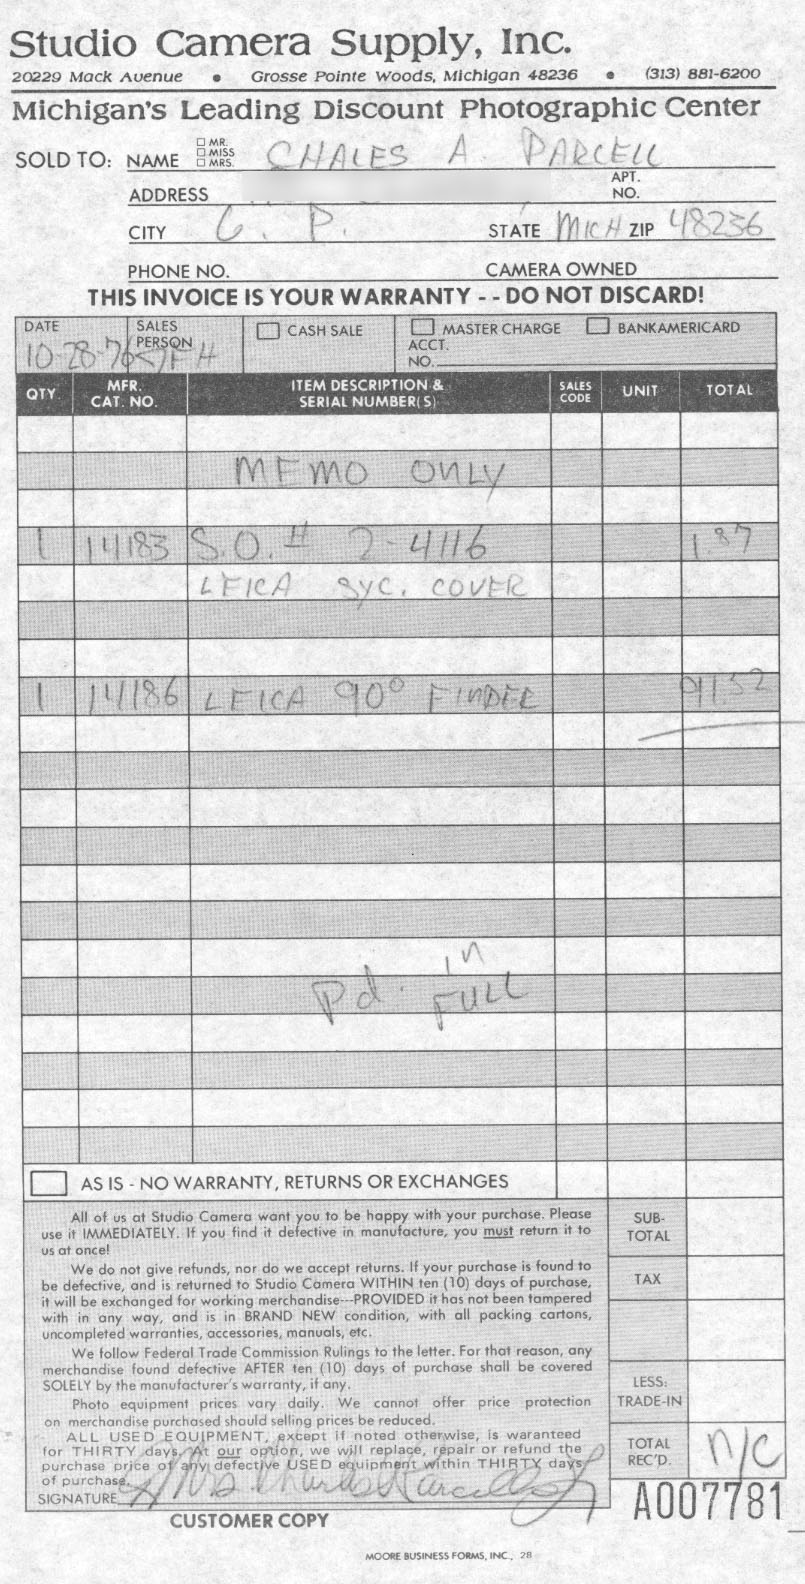 Studio Camera Supply, Inc.
20229 Mack Avenue • Grosse Pointe Woods, Michigan 48236 • (313) 881-6200
Michigan's Leading Discount Photographic Center
SOLD TO: NAME □ MR. □ MISS □ MRS. CHALES A. PARCELL
ADDRESS APT. NO.
CITY G. P. STATE MICH ZIP 48236
PHONE NO. CAMERA OWNED
THIS INVOICE IS YOUR WARRANTY -- DO NOT DISCARD!
DATE 10-28-76 SALES PERSON JFH □ CASH SALE □ MASTER CHARGE □ BANKAMERICARD
ACCT. NO.
QTY. MFR. CAT. NO. ITEM DESCRIPTION & SERIAL NUMBER(S) SALES CODE UNIT TOTAL
MEMO ONLY
1 14183 S.O.# 2-4116 1.87
LEICA SYC. COVER
1 14186 LEICA 90° FINDER 91.52
Pd. in
FULL
□ AS IS - NO WARRANTY, RETURNS OR EXCHANGES
All of us at Studio Camera want you to be happy with your purchase. Please
use it IMMEDIATELY. If you find it defective in manufacture, you must return it to
us at once!
We do not give refunds, nor do we accept returns. If your purchase is found to
be defective, and is returned to Studio Camera WITHIN ten (10) days of purchase,
it will be exchanged for working merchandise---PROVIDED it has not been tampered
with in any way, and is in BRAND NEW condition, with all packing cartons,
uncompleted warranties, accessories, manuals, etc.
We follow Federal Trade Commission Rulings to the letter. For that reason, any
merchandise found defective AFTER ten (10) days of purchase shall be covered
SOLELY by the manufacturer's warranty, if any.
Photo equipment prices vary daily. We cannot offer price protection
on merchandise purchased should selling prices be reduced.
ALL USED EQUIPMENT, except if noted otherwise, is waranteed
for THIRTY days. At our option, we will replace, repair or refund the
purchase price of any defective USED equipment within THIRTY days
of purchase.
SIGNATURE Mrs Charles Parcells
SUB-TOTAL
TAX
LESS: TRADE-IN
TOTAL REC'D. N/C
A007781
CUSTOMER COPY
MOORE BUSINESS FORMS, INC., 28